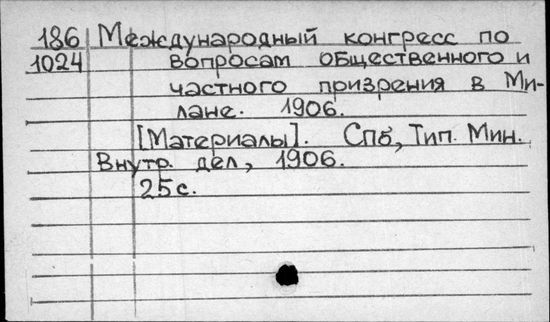 186 Международный конгресс по
1024 вопросам общественного и
частного призрения в Ми-
лане. 1906.
[Материалы]. Спб, Тип. Мин.
Внутр. дел, 1906.
25с.